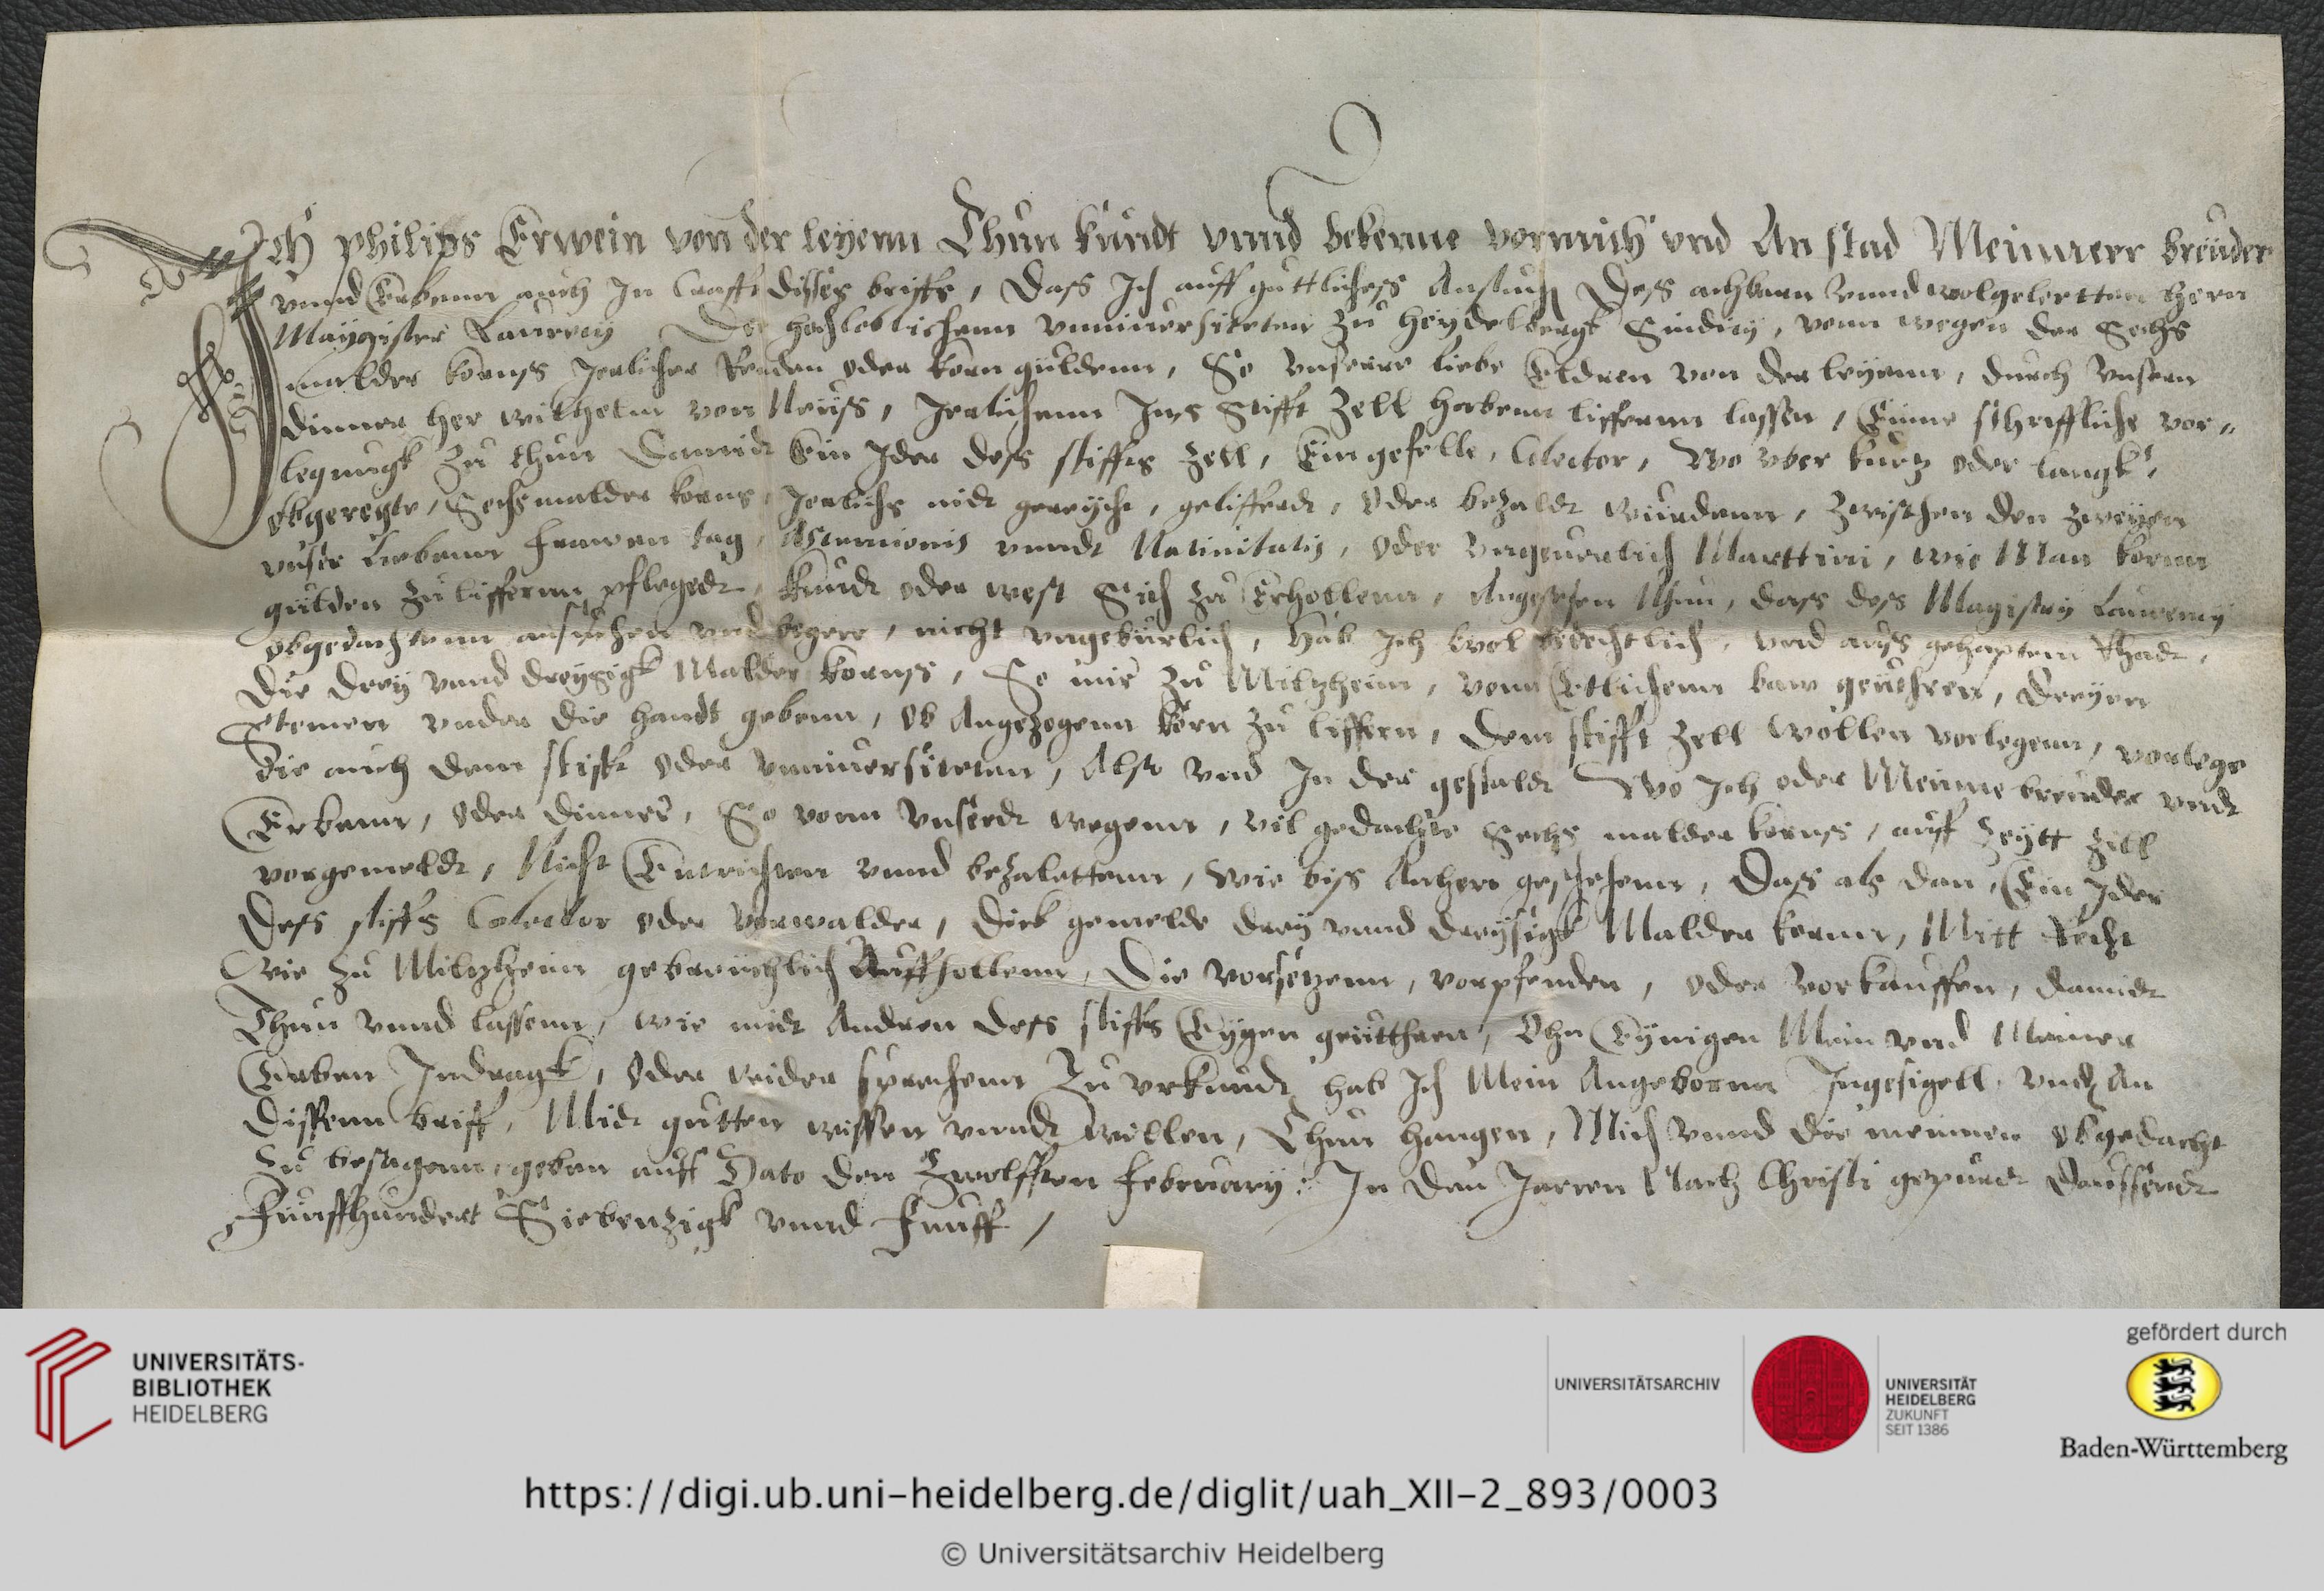 Ich philips Erwein von der leyenn Thun kundt vnnd bekenne vor mich vnd An stad Meinnerr breuder
vnnd Erbenn auch In Crafft disses briffs, Dass Ich auff guttlichess Ansuch Dess achbarn vnnd wolgelertten hern
Maygister Laurenty Der hochloblichenn vnniuersiteten zu heydelbergk Sindicy, vonn wegen der Sechs
malder kornss Jerlicher Renden oder korn guldenn, So vnserre liebe Eldren von der leyenn, durch vnsern
dinner her wilhelm von Neuss, Jerlichenn Ins Stifft Zell habenn lieffernn lassen, Einne schrifftliche vor-
legnugk zu thun Damidt Ein Jder dess stiffts Zell, Eingefelle, Colector, Wo vber kurtz oder langk,
obgeregte, Sechs malder korns, Jerlichs nidt gereycht, geliffert, oder bezaldt wurdenn, zwischen den zweyen
vnser Liebenn frawen tag, Assumtionis vnndt Natiuitatis, oder vngeuerlich Marttini, wie Man kornn
gulden zu liffernn pflegedt, kundt oder west Sich zu Erhollenn, Angesehen Nhun, dass dess Magistry Laurenty
obgedachtenn ansuchen vnd begere, nicht vngeburlich, Hab Ich wol bedechtlich, vnd auss gehaptem Rhadt,
Die drey vnnd dreyssigk Malder kornss, So mir zu Milzheim, vonn Etlichenn baw geuthren, dreyen
Stemen vnder die handt gebenn, ob Angezogenn korn zu liffern, dem stifft Zell wollen vorlegenn, vorlege
die auch dem stifft oder vnniuersiteten, Also vnd In der gestaldt Wo Ich oder Meinne breuder vndt
Erbenn, oder dinner, So vonn vnserdt wegenn, vil gedachte Sechs malder kornss, auff Zeytt Zill
vorgemeldt, Nicht Entrichten vnnd bezalettenn, wie biss Anhero geschehenn, Dass als dan, Ein Jder
Dess stiffts Colector oder vorwalder, Dick gemelde drey vnnd dreyssigk Malder kornn, Mitt Recht
Wie zu Milzheim gebreuchlich Auffhollenn, Die vorsetzenn, vorpfenden, oder vorkauffen, damidt
Thun vnnd lassenn, wie midt Andren dess stiffts Eygen geutthren, Ohn Eynigen Mein vnd Meiner
Erben Indragk, oder wider sprechenn Zu vrkundt hab Ich Mein Angebornn Ingesigell vndt An
dissenn briff, Midt gutten wissen vnndt willen, Thun hangen, Mich vnnd die meinnen obgedacht
Zu besagenn, geben auff Dato den Zwolfften February: In den Jarren Nach Christi gepurdt Daussendt
Funffhundert Siebenzigk vnnd Funff,
UNIVERSITÄTS-
BIBLIOTHEK
HEIDELBERG
UNIVERSITÄTSARCHIV
UNIVERSITÄT
HEIDELBERG
ZUKUNFT
SEIT 1386
gefördert durch
Baden-Württemberg
https://digi.ub.uni-heidelberg.de/diglit/uah_XII-2_893/0003
© Universitätsarchiv Heidelberg